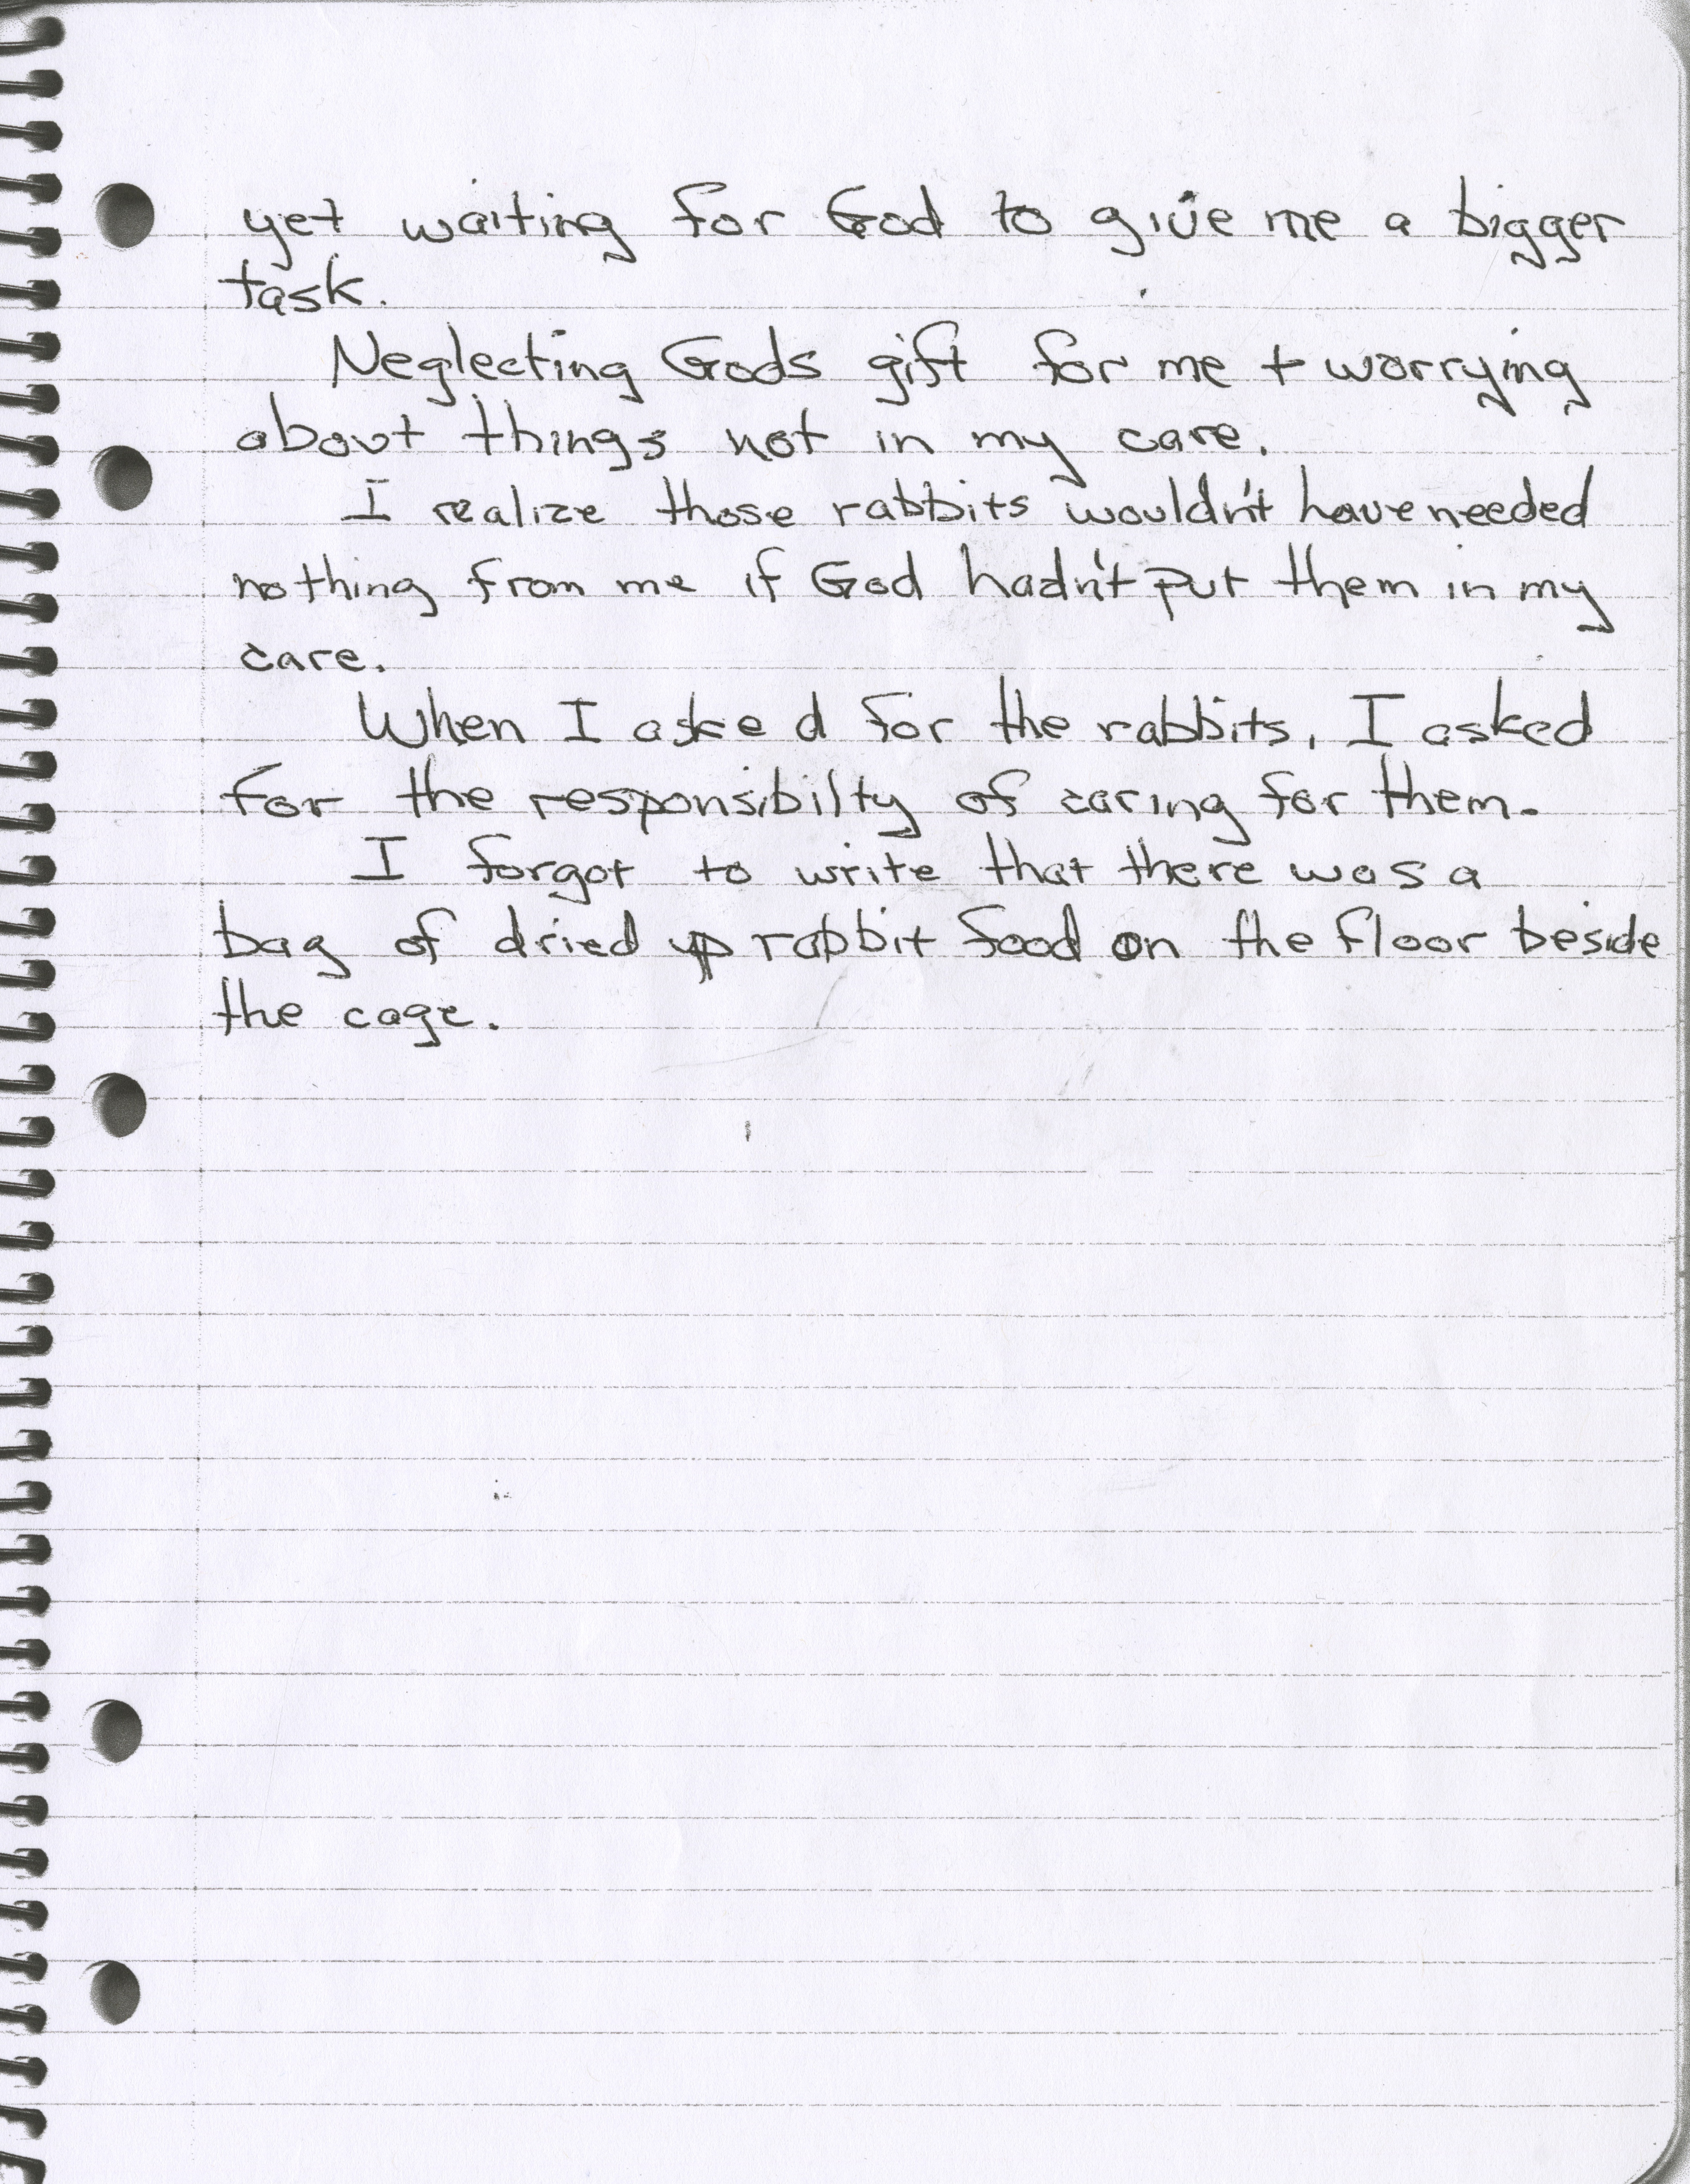 yet waiting for God to give me a bigger
task.
Neglecting Gods gift for me + worrying
about things not in my care.
I realize those rabbits wouldn't have needed
nothing from me if God hadn't put them in my
care.
When I asked for the rabbits, I asked
for the responsibilty of caring for them.
I forgot to write that there was a
bag of dried up rabbit food on the floor beside
the cage.